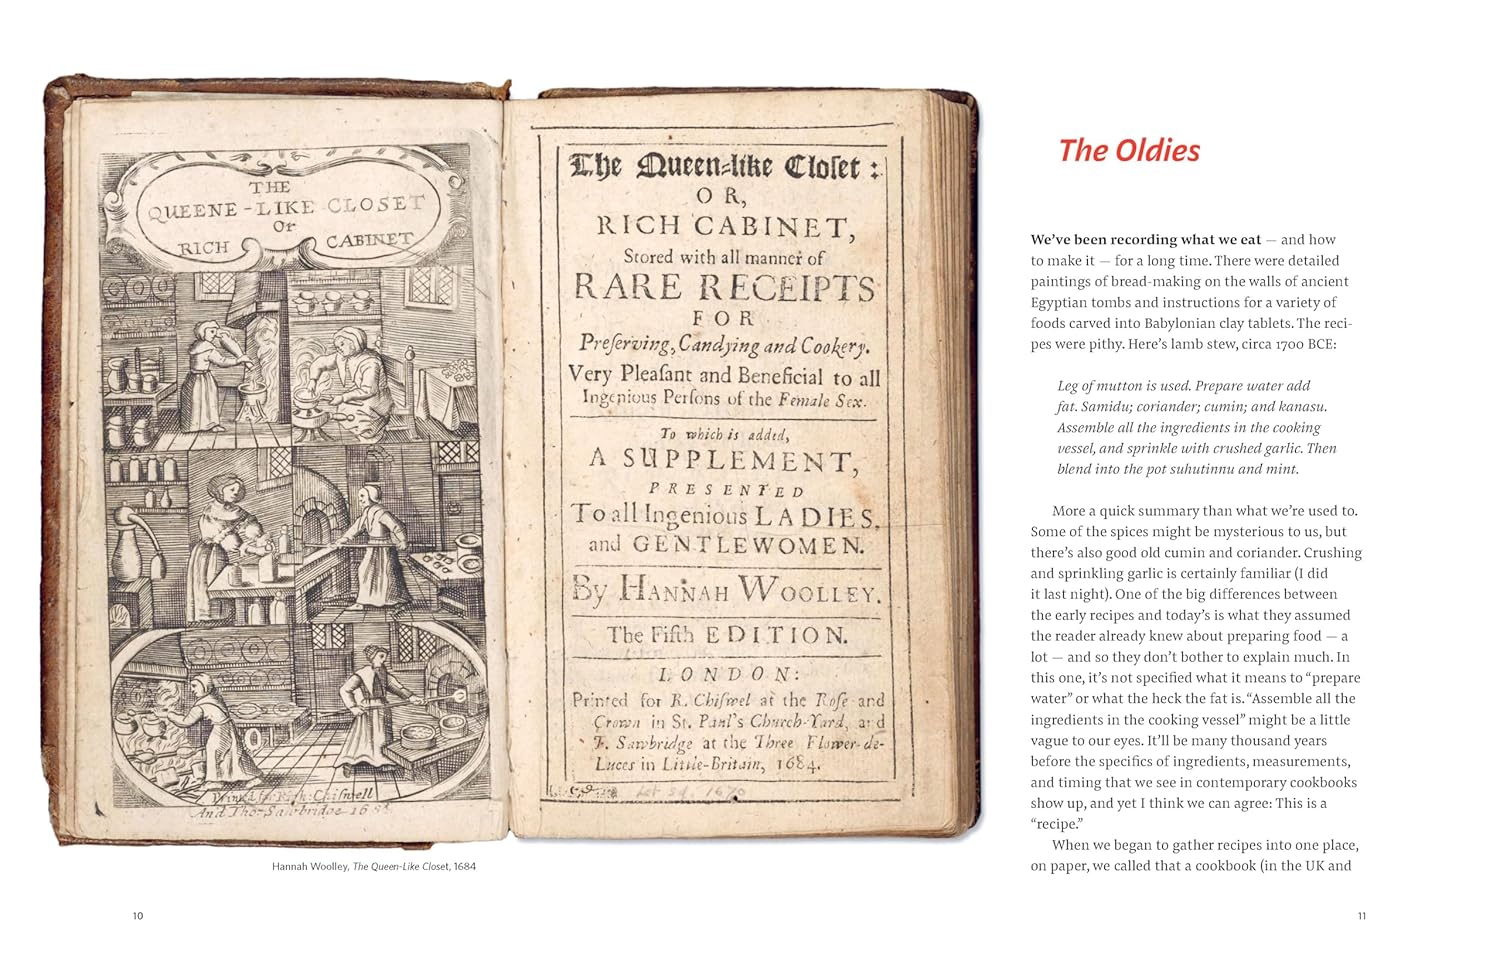 THE
QUEENE-LIKE CLOSET
Or
RICH CABINET
Printed for Rich: Chiswell
And Tho: Sawbridge 1684
The Queen-like Cloſet :
OR,
RICH CABINET,
Stored with all manner of
RARE RECEIPTS
FOR
Preſerving, Candying and Cookery.
Very Pleaſant and Beneficial to all
Ingenious Perſons of the Female Sex.
To which is added,
A SUPPLEMENT,
PRESENTED
To all Ingenious LADIES,
and GENTLEWOMEN.
By HANNAH WOOLLEY.
The Fifth EDITION.
LONDON:
Printed for R. Chiſwel at the Roſe and
Crown in St. Paul's Church-Yard, and
T. Sawbridge at the Three Flower-de-
Luces in Little-Britain, 1684.
1670
Hannah Woolley, The Queen-Like Closet, 1684
10
The Oldies
We’ve been recording what we eat — and how
to make it — for a long time. There were detailed
paintings of bread-making on the walls of ancient
Egyptian tombs and instructions for a variety of
foods carved into Babylonian clay tablets. The reci-
pes were pithy. Here’s lamb stew, circa 1700 BCE:
Leg of mutton is used. Prepare water add
fat. Samidu; coriander; cumin; and kanasu.
Assemble all the ingredients in the cooking
vessel, and sprinkle with crushed garlic. Then
blend into the pot suhutinnu and mint.
More a quick summary than what we’re used to.
Some of the spices might be mysterious to us, but
there’s also good old cumin and coriander. Crushing
and sprinkling garlic is certainly familiar (I did
it last night). One of the big differences between
the early recipes and today’s is what they assumed
the reader already knew about preparing food — a
lot — and so they don’t bother to explain much. In
this one, it’s not specified what it means to “prepare
water” or what the heck the fat is. “Assemble all the
ingredients in the cooking vessel” might be a little
vague to our eyes. It’ll be many thousand years
before the specifics of ingredients, measurements,
and timing that we see in contemporary cookbooks
show up, and yet I think we can agree: This is a
“recipe.”
When we began to gather recipes into one place,
on paper, we called that a cookbook (in the UK and
11